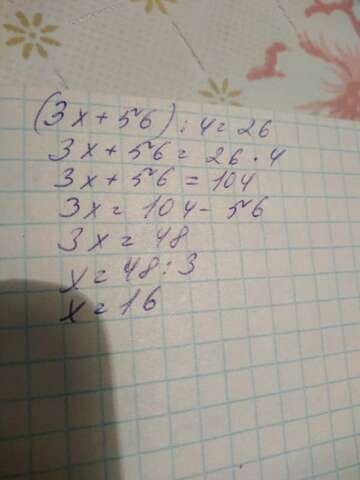 (3x+56):4=26
3x+56=26·4
3x+56=104
3x=104-56
3x=48
x=48:3
x=16